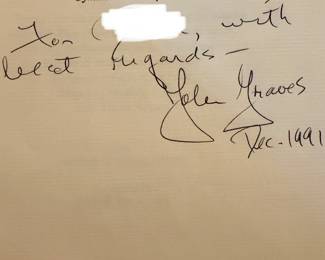 For , with
best regards —
John Graves
Dec. 1991